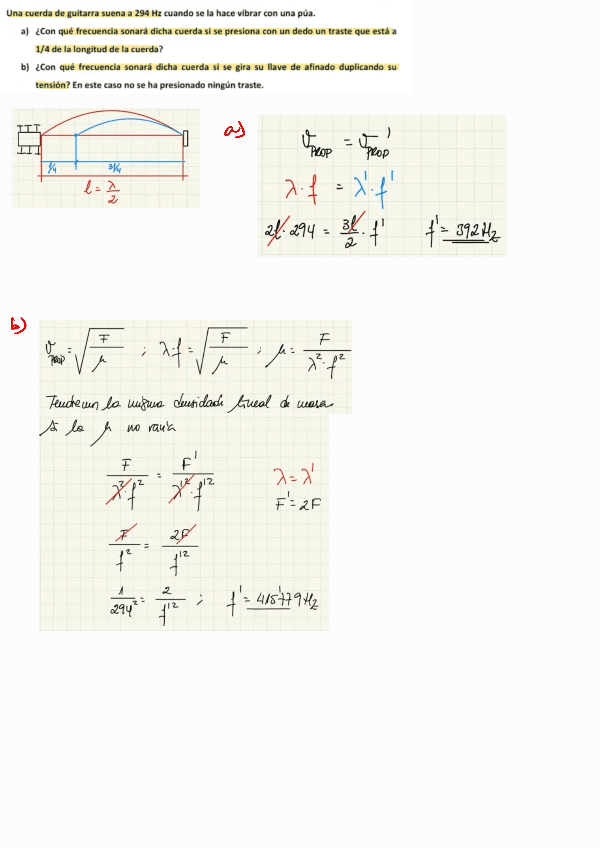 Una cuerda de guitarra suena a 294 Hz cuando se la hace vibrar con una púa.
a) ¿Con qué frecuencia sonará dicha cuerda si se presiona con un dedo un traste que está a
1/4 de la longitud de la cuerda?
b) ¿Con qué frecuencia sonará dicha cuerda si se gira su llave de afinado duplicando su
tensión? En este caso no se ha presionado ningún traste.
l/4 3l/4
l = λ/2
a)
v_PROP = v_PROP'
λ · f = λ' · f'
2l · 294 = 3l/2 · f' f' = 392 Hz
b)
v_PROP = √(F/μ) ; λ·f = √(F/μ) ; μ = F/(λ² · f²)
Tendremos la misma densidad lineal de masa
la μ no varía
F/(λ² · f²) = F'/(λ'² · f'²) λ = λ'
F' = 2F
F/f² = 2F/f'²
1/294² = 2/f'² ; f' = 415'779 Hz